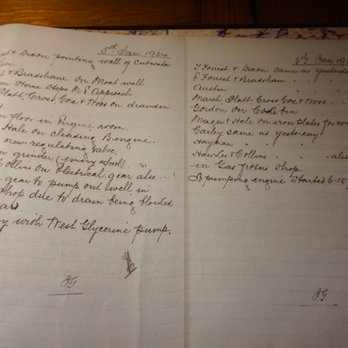 5th Jan
& Dixon pointing wall of Cutwater
& Bradshaw on Moat wall
on Stone Steps N. E Approach
Platt, Cross, Coe & Wos on drawdon
floor in Engine room.
Hale on cleading B engine.
new regulating valve.
grinder (emery wheel).
Collins on Electrical gear also
gear to pump out well in
shop due to drain being blocked
with West Glycerine pump.
JG
6th Jan 19
T Forrest & Dixon same as yesterday
E Forrest & Bradshaw
Austin
March Platt Cross Coe & Wos
Gordon on
& Hale on iron plates for
Carley same as yesterday
Hayman
Howles & Collins also
in Gas fitters shop.
pumping engine started 6.15
JG